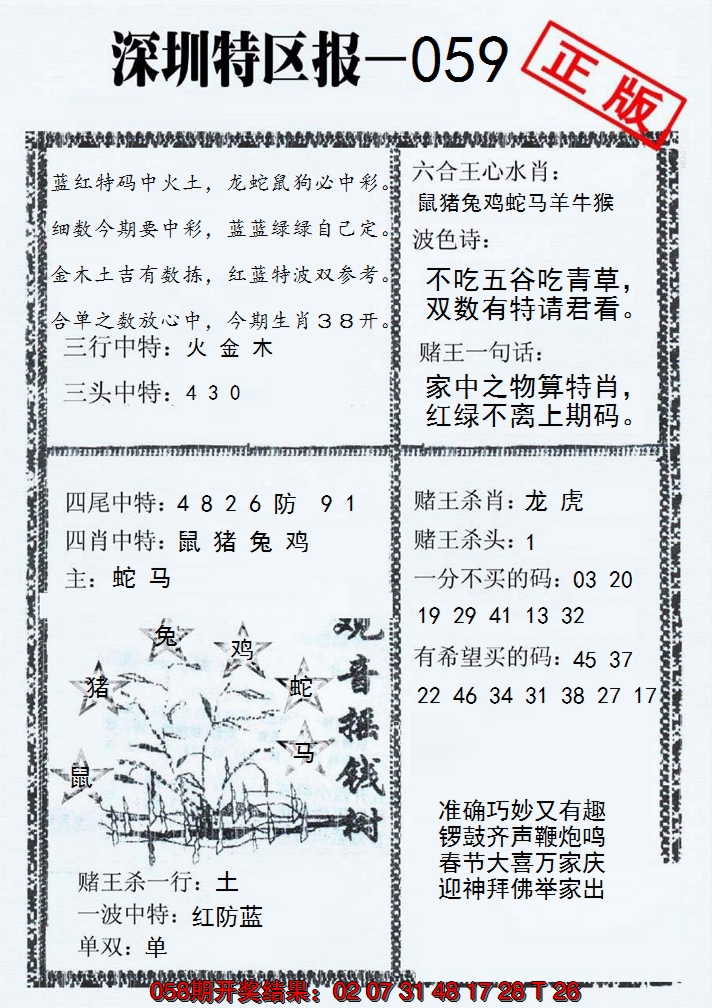 深圳特区报—059
正版
蓝红特码中火土，龙蛇鼠狗必中彩。
细数今期要中彩，蓝蓝绿绿自己定。
金木土吉有数拣，红蓝特波双参考。
合单之数放心中，今期生肖３８开。
三行中特：火 金 木
三头中特：4 3 0
六合王心水肖：
鼠猪兔鸡蛇马羊牛猴
波色诗：
不吃五谷吃青草，
双数有特请君看。
赌王一句话：
家中之物算特肖，
红绿不离上期码。
四尾中特：4 8 2 6 防 9 1
四肖中特：鼠 猪 兔 鸡
主：蛇 马
观音摇钱树
兔
鸡
猪
蛇
马
鼠
赌王杀一行：土
一波中特：红防蓝
单双：单
赌王杀肖：龙 虎
赌王杀头：1
一分不买的码：03 20
19 29 41 13 32
有希望买的码：45 37
22 46 34 31 38 27 17
准确巧妙又有趣
锣鼓齐声鞭炮鸣
春节大喜万家庆
迎神拜佛举家出
058期开奖结果：02 07 31 48 17 28 T 26